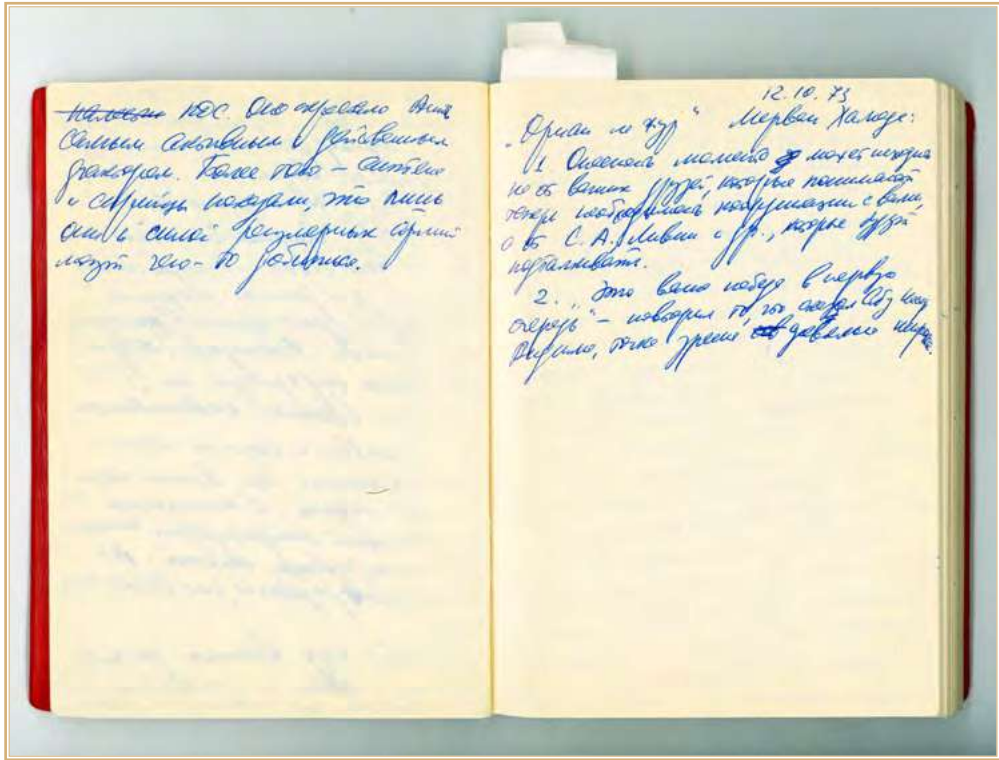 ПОС. Оно
самым активным и действенным
фактором. Более того —
и сирийцы показали, что лишь
они и силой регулярных армий
могут чего-то добиться.
12.10.73
„Ориан ле Жур" Мерван Хамаде:
1. Опасность момента может исходить
не от ваших друзей, которые понимают
теперь необходимость координации с вами,
а от С. А. Ливии и др., которые будут
подталкивать.
2. „Это ваша победа в первую
очередь" — повторил то, что сказал Абу
Видимо, точка зрения довольно